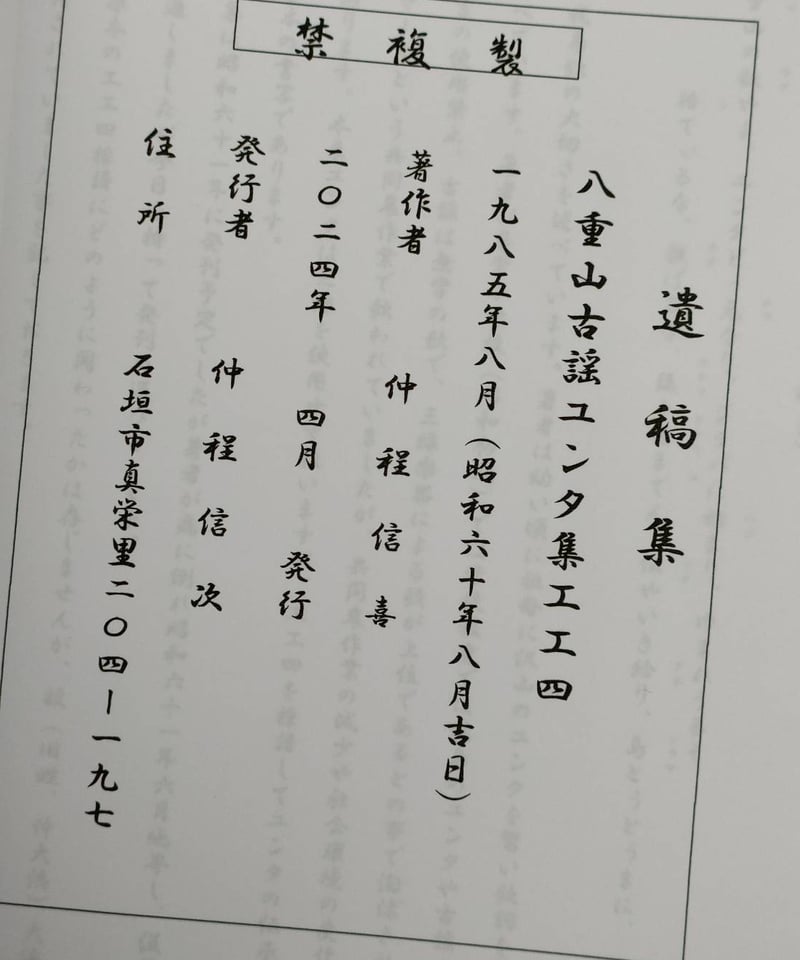 禁複製
遺稿集
八重山古謡ユンタ集工工四
一九八五年八月(昭和六十年八月吉日)
著作者 仲程信喜
二〇二四年 四月 発行
発行者 仲程信次
住所 石垣市真栄里二〇四ー一九七